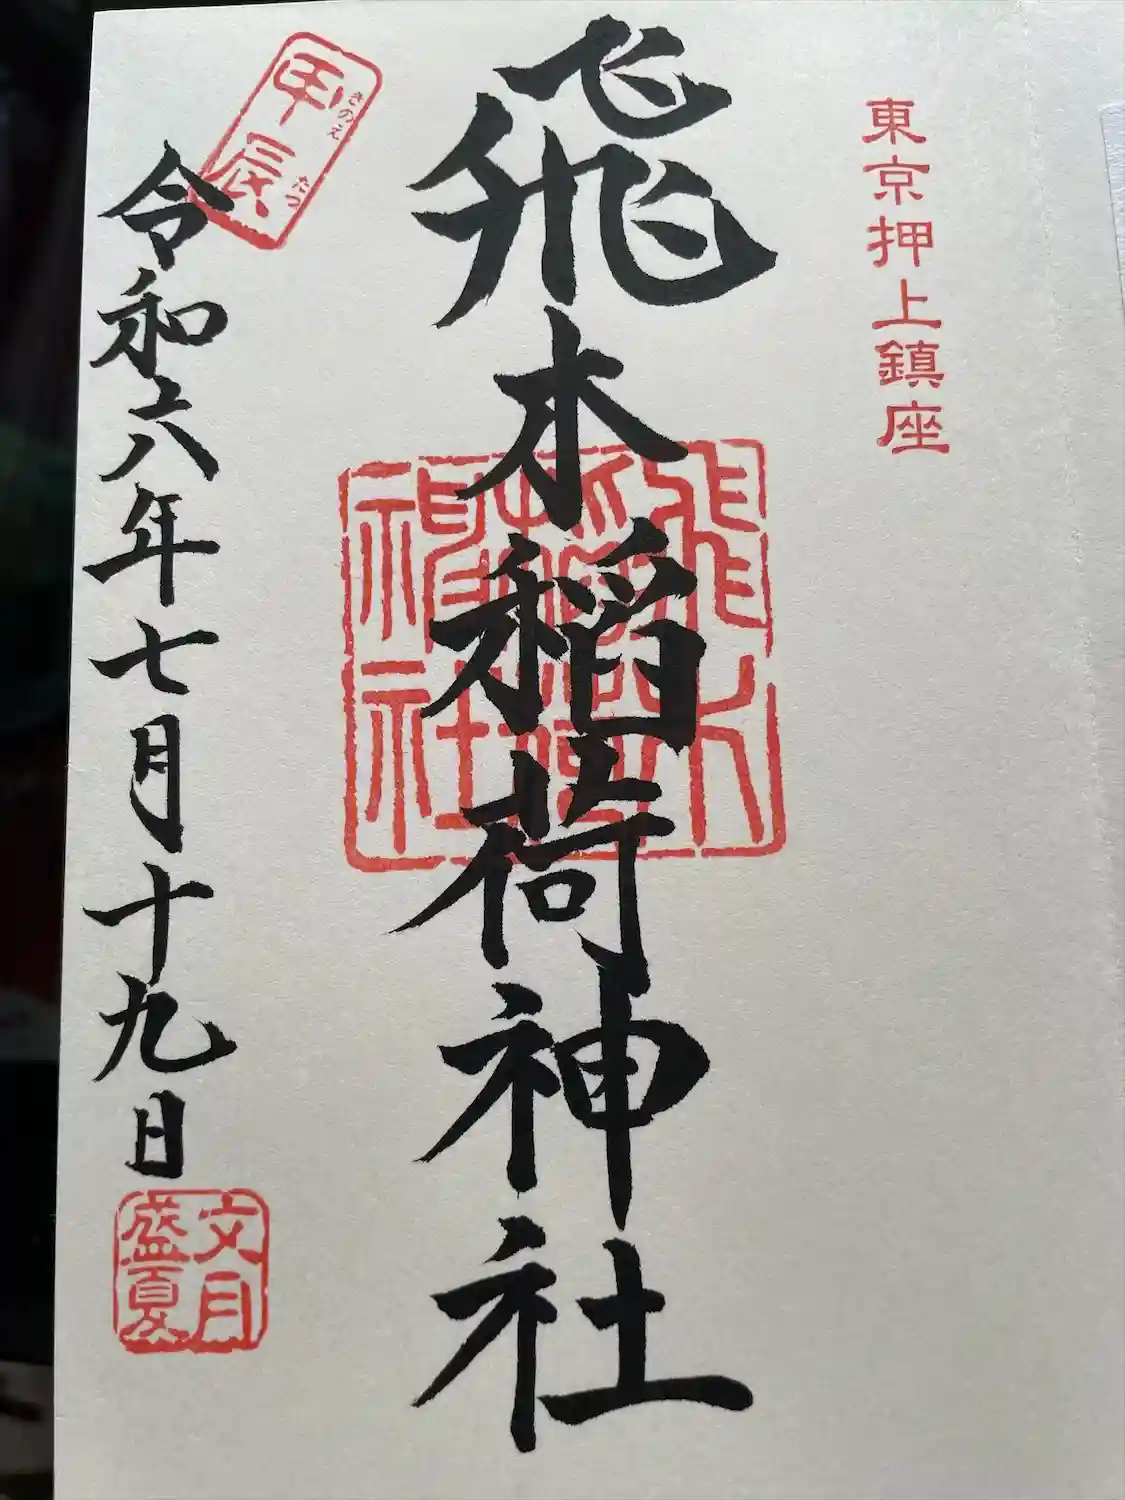 東京押上鎮座
飛木稲荷神社
飛木
稲荷
神社
甲辰
きのえ
たつ
令和六年七月十九日
文月
盛夏